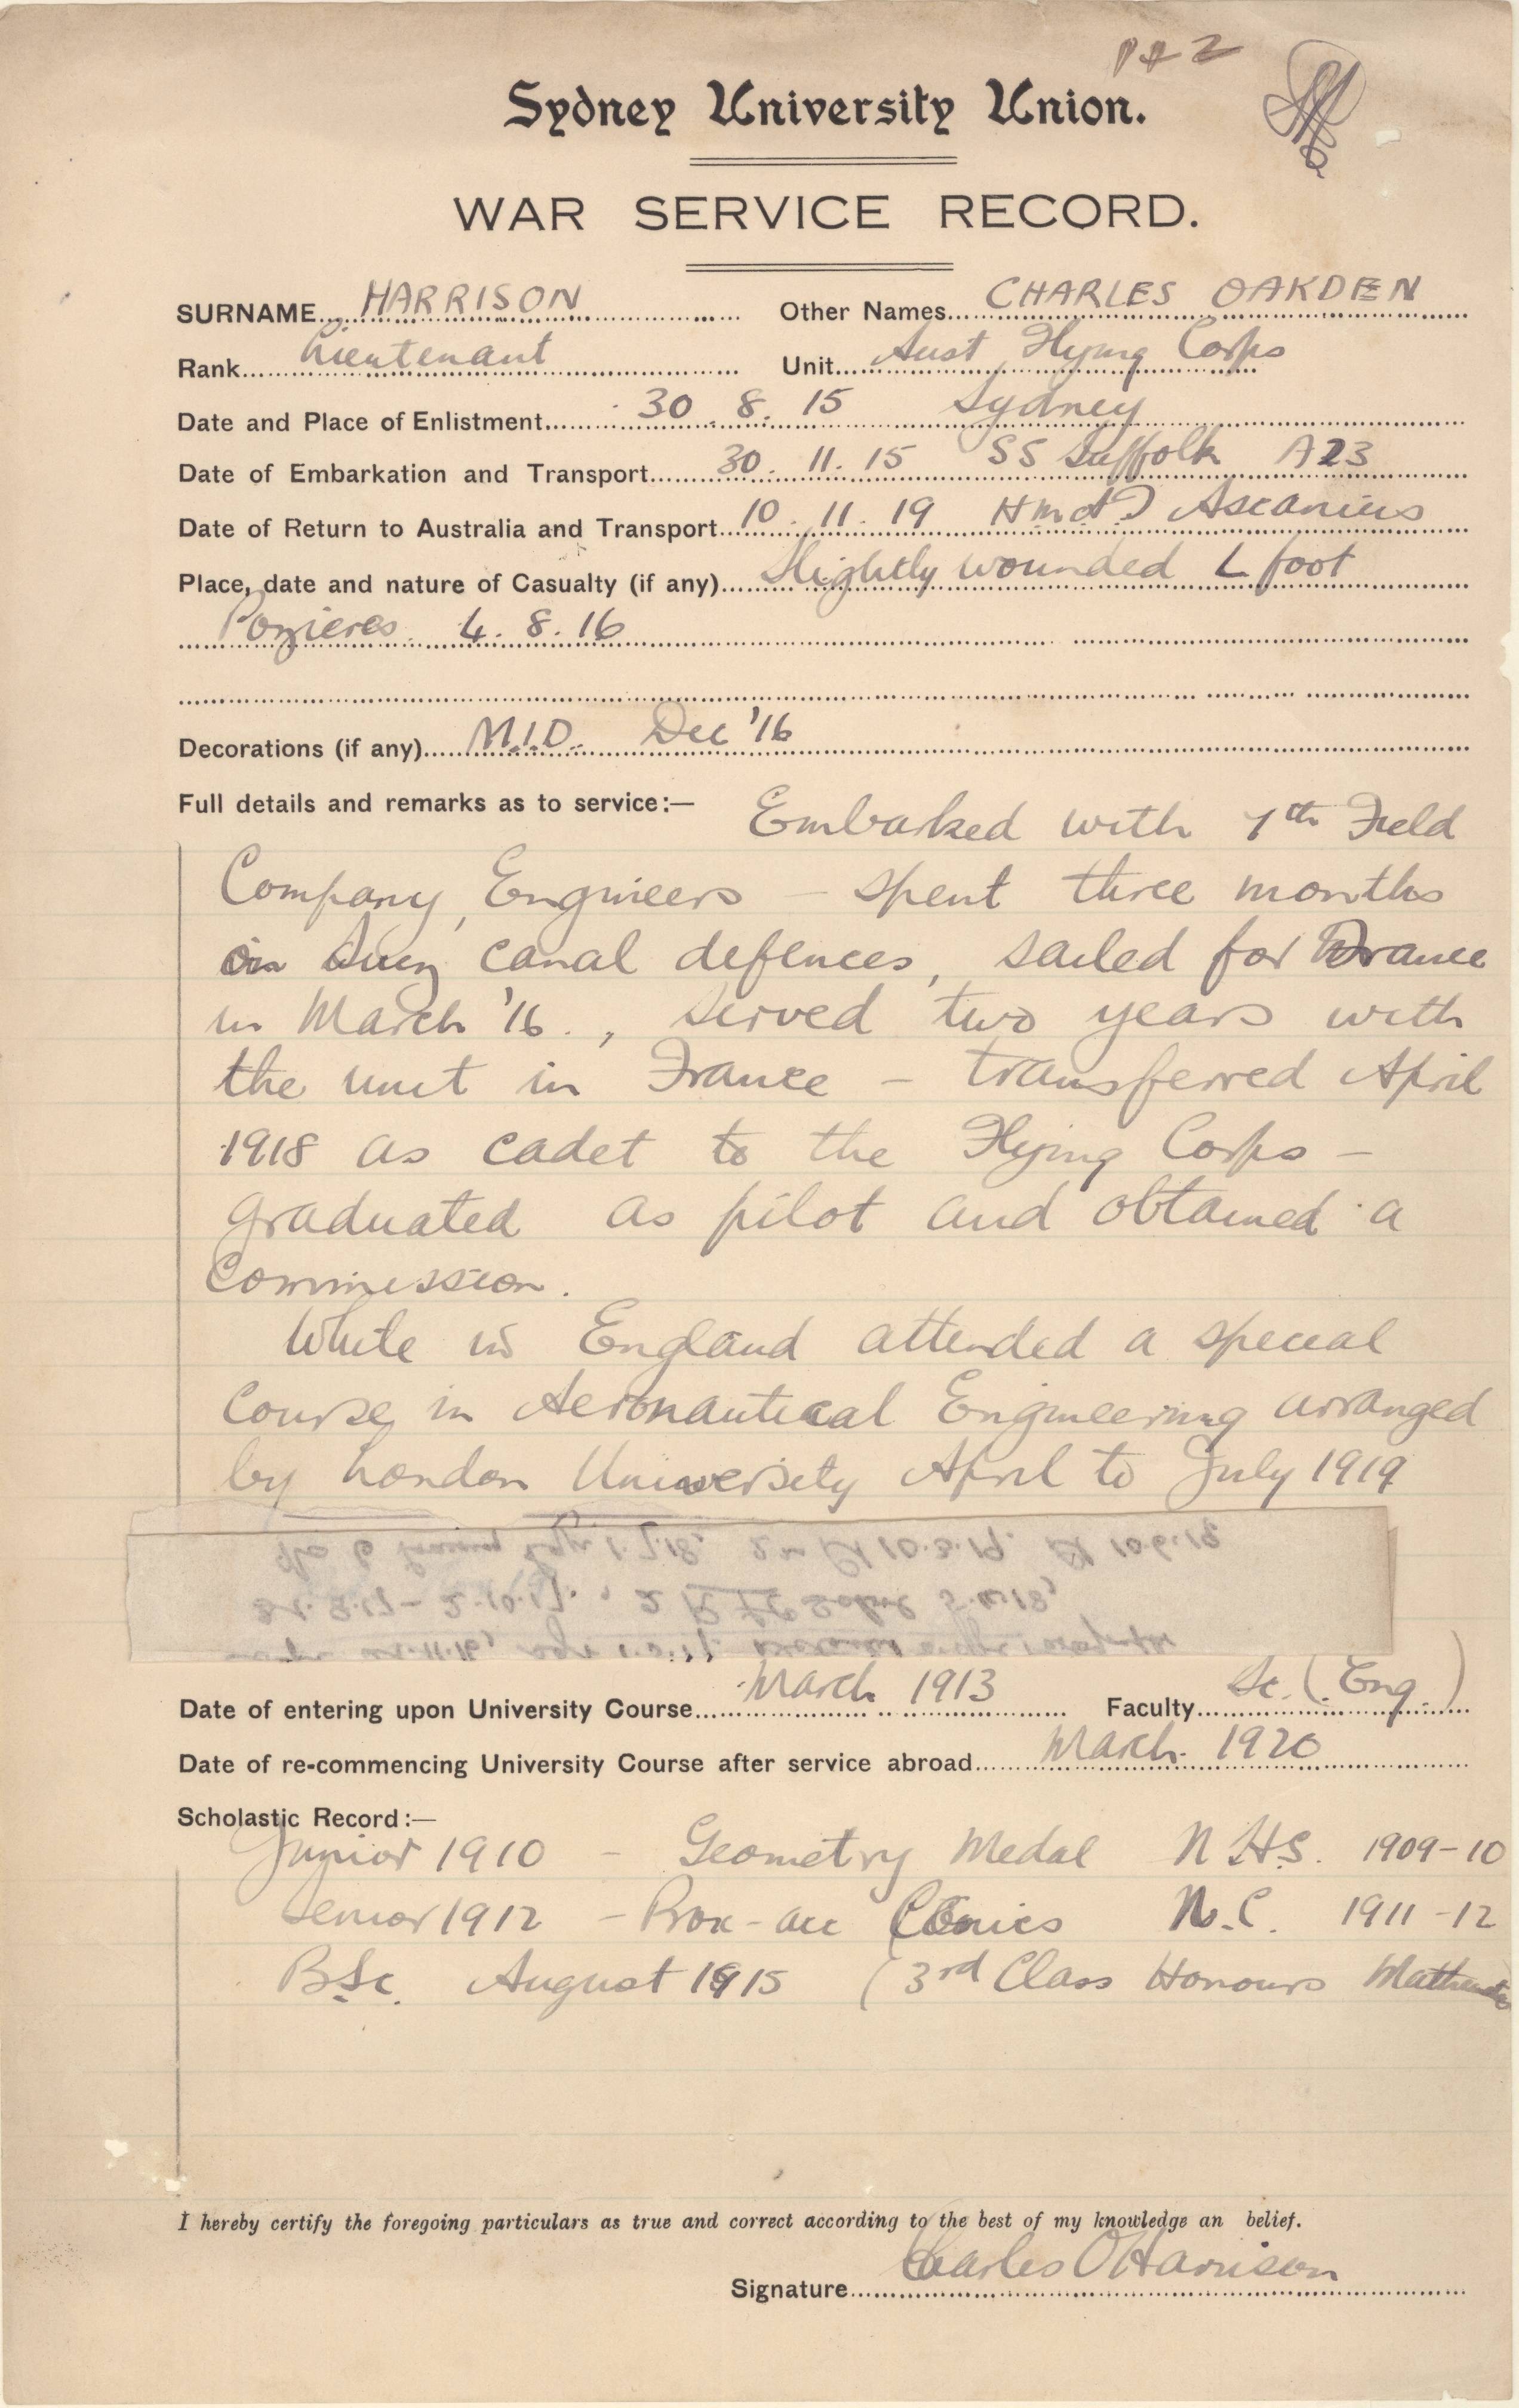 Sydney University Union.
WAR SERVICE RECORD.
SURNAME HARRISON Other Names CHARLES OAKDEN
Rank Lieutenant Unit Aust Flying Corps
Date and Place of Enlistment 30. 8. 15 Sydney
Date of Embarkation and Transport 30. 11. 15 SS Suffolk A23
Date of Return to Australia and Transport 10. 11. 19 HMAT Ascanius
Place, date and nature of Casualty (if any) Slightly wounded L foot
Pozieres 4. 8. 16
Decorations (if any) M.I.D. Dec '16
Full details and remarks as to service:— Embarked with 7th Field
Company, Engineers – spent three months
on Suez canal defences, sailed for France
in March '16., served two years with
the unit in France – transferred April
1918 as cadet to the Flying Corps –
graduated as pilot and obtained a
Commission.
While in England attended a special
Course in Aeronautical Engineering arranged
by London University April to July 1919
Date of entering upon University Course March 1913 Faculty Sc. (Eng.)
Date of re-commencing University Course after service abroad March 1920
Scholastic Record:—
Junior 1910 – Geometry Medal N.H.S. 1909-10
Senior 1912 – Prox-acc Conics N.C. 1911-12
BSc. August 1915 (3rd Class Honours
I hereby certify the foregoing particulars as true and correct according to the best of my knowledge an belief.
Signature Charles O Harrison